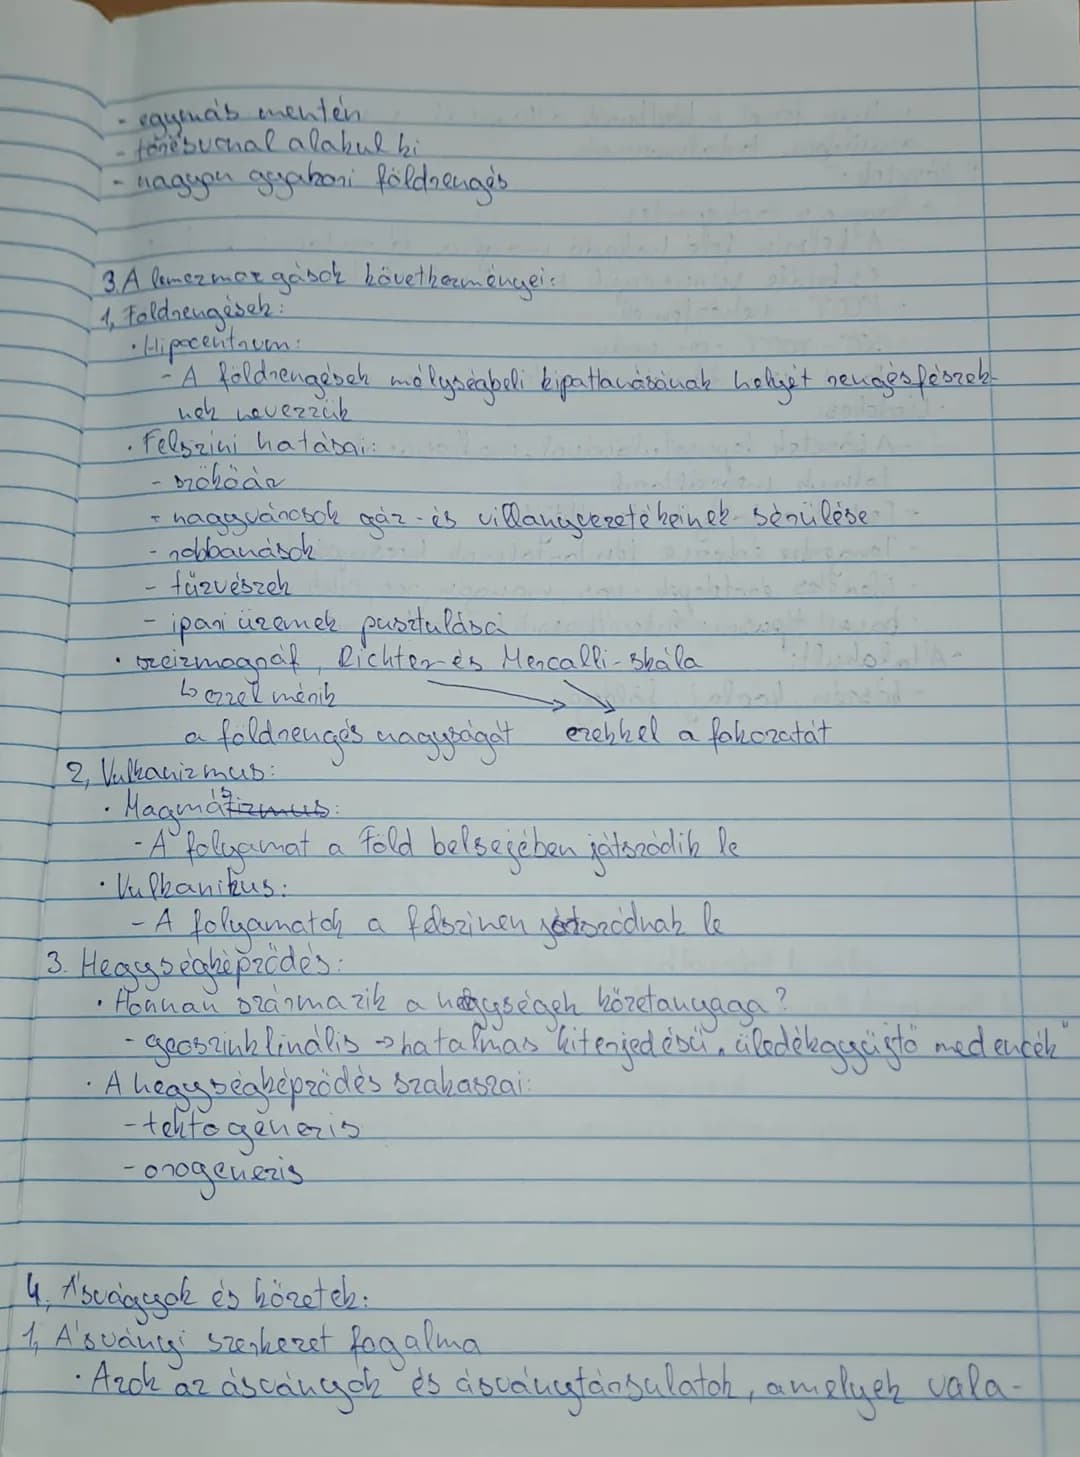 - egymás mentén
- törésvonal alakul ki
- nagyon gyakori földrengés
3. A lemezmozgások következményei:
1, Földrengések:
• Hipocentrum:
- A földrengések mélységbeli kipattanásának helyét rengésfészek-
nek nevezzük
• Felszíni hatásai:
- szökőár
- nagyvárosok gáz- és villanyvezetékeinek sérülése
- robbanások
- tűzvészek
- ipari üzemek pusztulása
• szeizmográf, Richter és Mercalli-skála
↳ ezzel mérik
a földrengés nagyságát ezekkel a fokozatát
2, Vulkanizmus:
• Magmás:
- A folyamat a Föld belsejében játszódik le
• Vulkanikus:
- A folyamatok a felszínen játszódnak le
3. Hegységképződés:
• Honnan származik a hegységek kőzetanyaga?
- geoszinklinális → hatalmas kiterjedésű, "üledékgyűjtő medencék"
• A hegységképződés szakaszai:
- tektogenezis
- orogenezis
4. Ásványok és kőzetek:
1, Ásványi szerkezet fogalma
• Azok az ásványok és ásványtársulatok, amelyek vala-